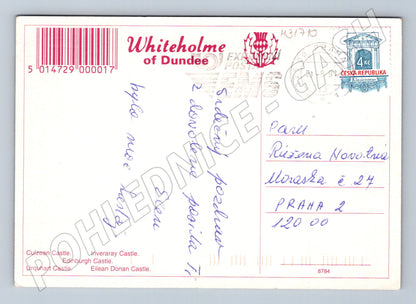 Whiteholme
of Dundee
5 014729 000017
431710
4 Kč
ČESKÁ REPUBLIKA
Srdečný pozdrav
z dovolené posílá
bylo moc hezky
Paní
Růžena Novotná
Moravská č 27
PRAHA 2
120 00
Culzean Castle. Inveraray Castle.
Edinburgh Castle.
Urquhart Castle. Eilean Donan Castle.
8784
POHLEDNICE - GASH